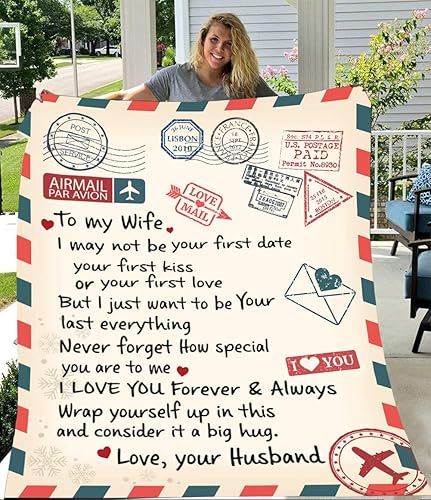 POST
SERVICE
26 JUNIY
LISBON
2019
FRANCE
18 SEPT
FRANCE
U.S. POSTAGE
PAID
Permit No.6930
AIRMAIL
PAR AVION
LOVE
MAIL
BOSTON
To my Wife
I may not be your first date
your first kiss
or your first love
But I just want to be Your
last everything
Never forget How special
you are to me
I LOVE YOU Forever & Always
Wrap yourself up in this
and consider it a big hug.
Love, your Husband
I YOU